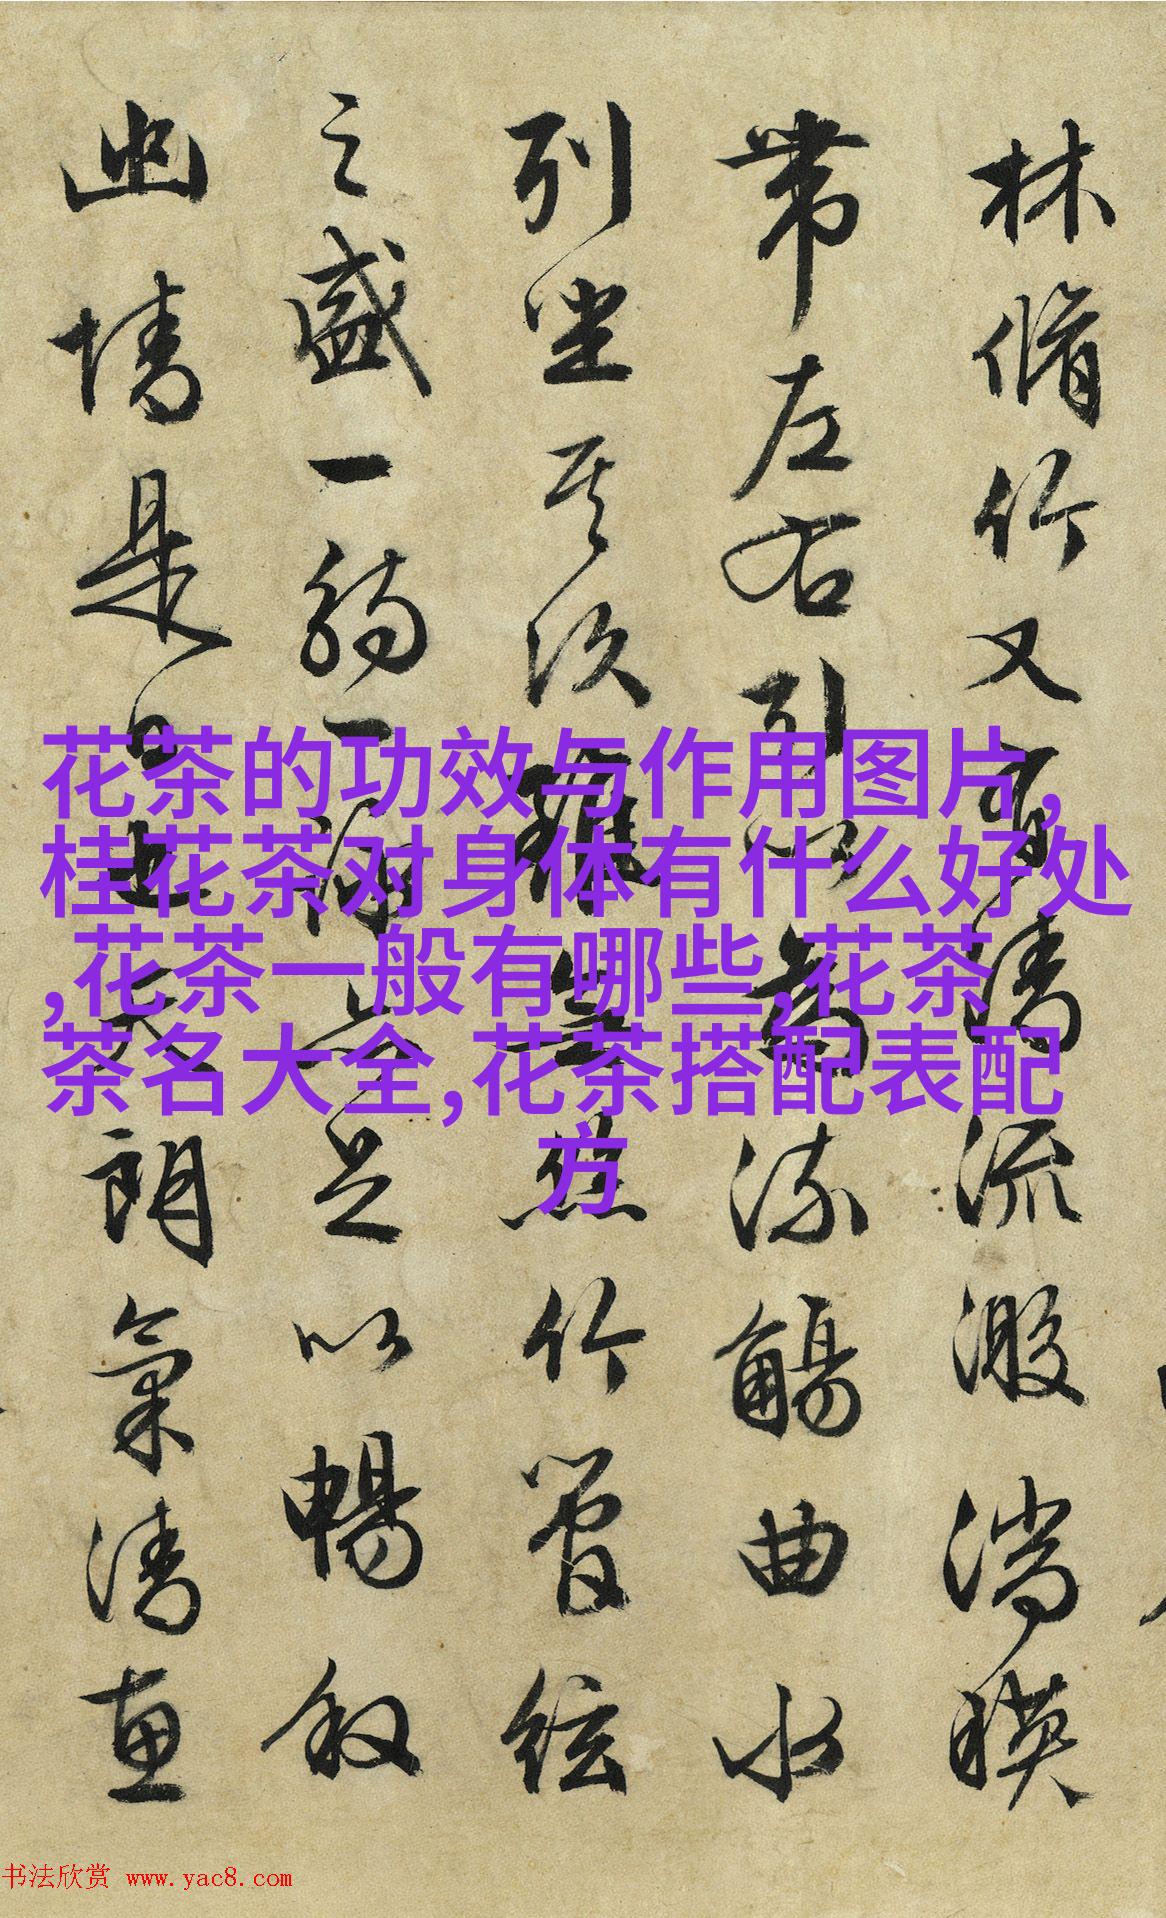 林脩竹又有清流激湍暎
帶左右引以為流觴曲水
列坐其次雖無絲竹管絃
之盛一觴一詠亦足以暢叙
幽情是日也天朗氣清惠
花茶的功效与作用图片,
桂花茶对身体有什么好处
,花茶一般有哪些,花茶
茶名大全,花茶搭配表配
方
书法欣赏 www.yac8.com